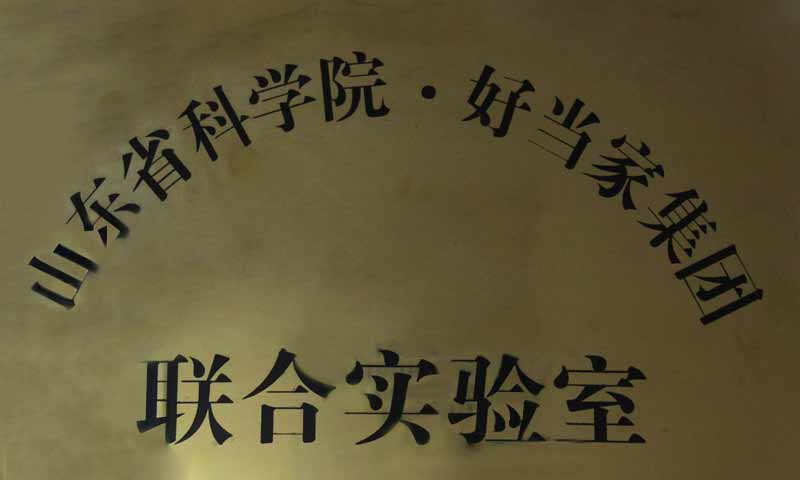 山东省科学院·好当家集团
联合实验室